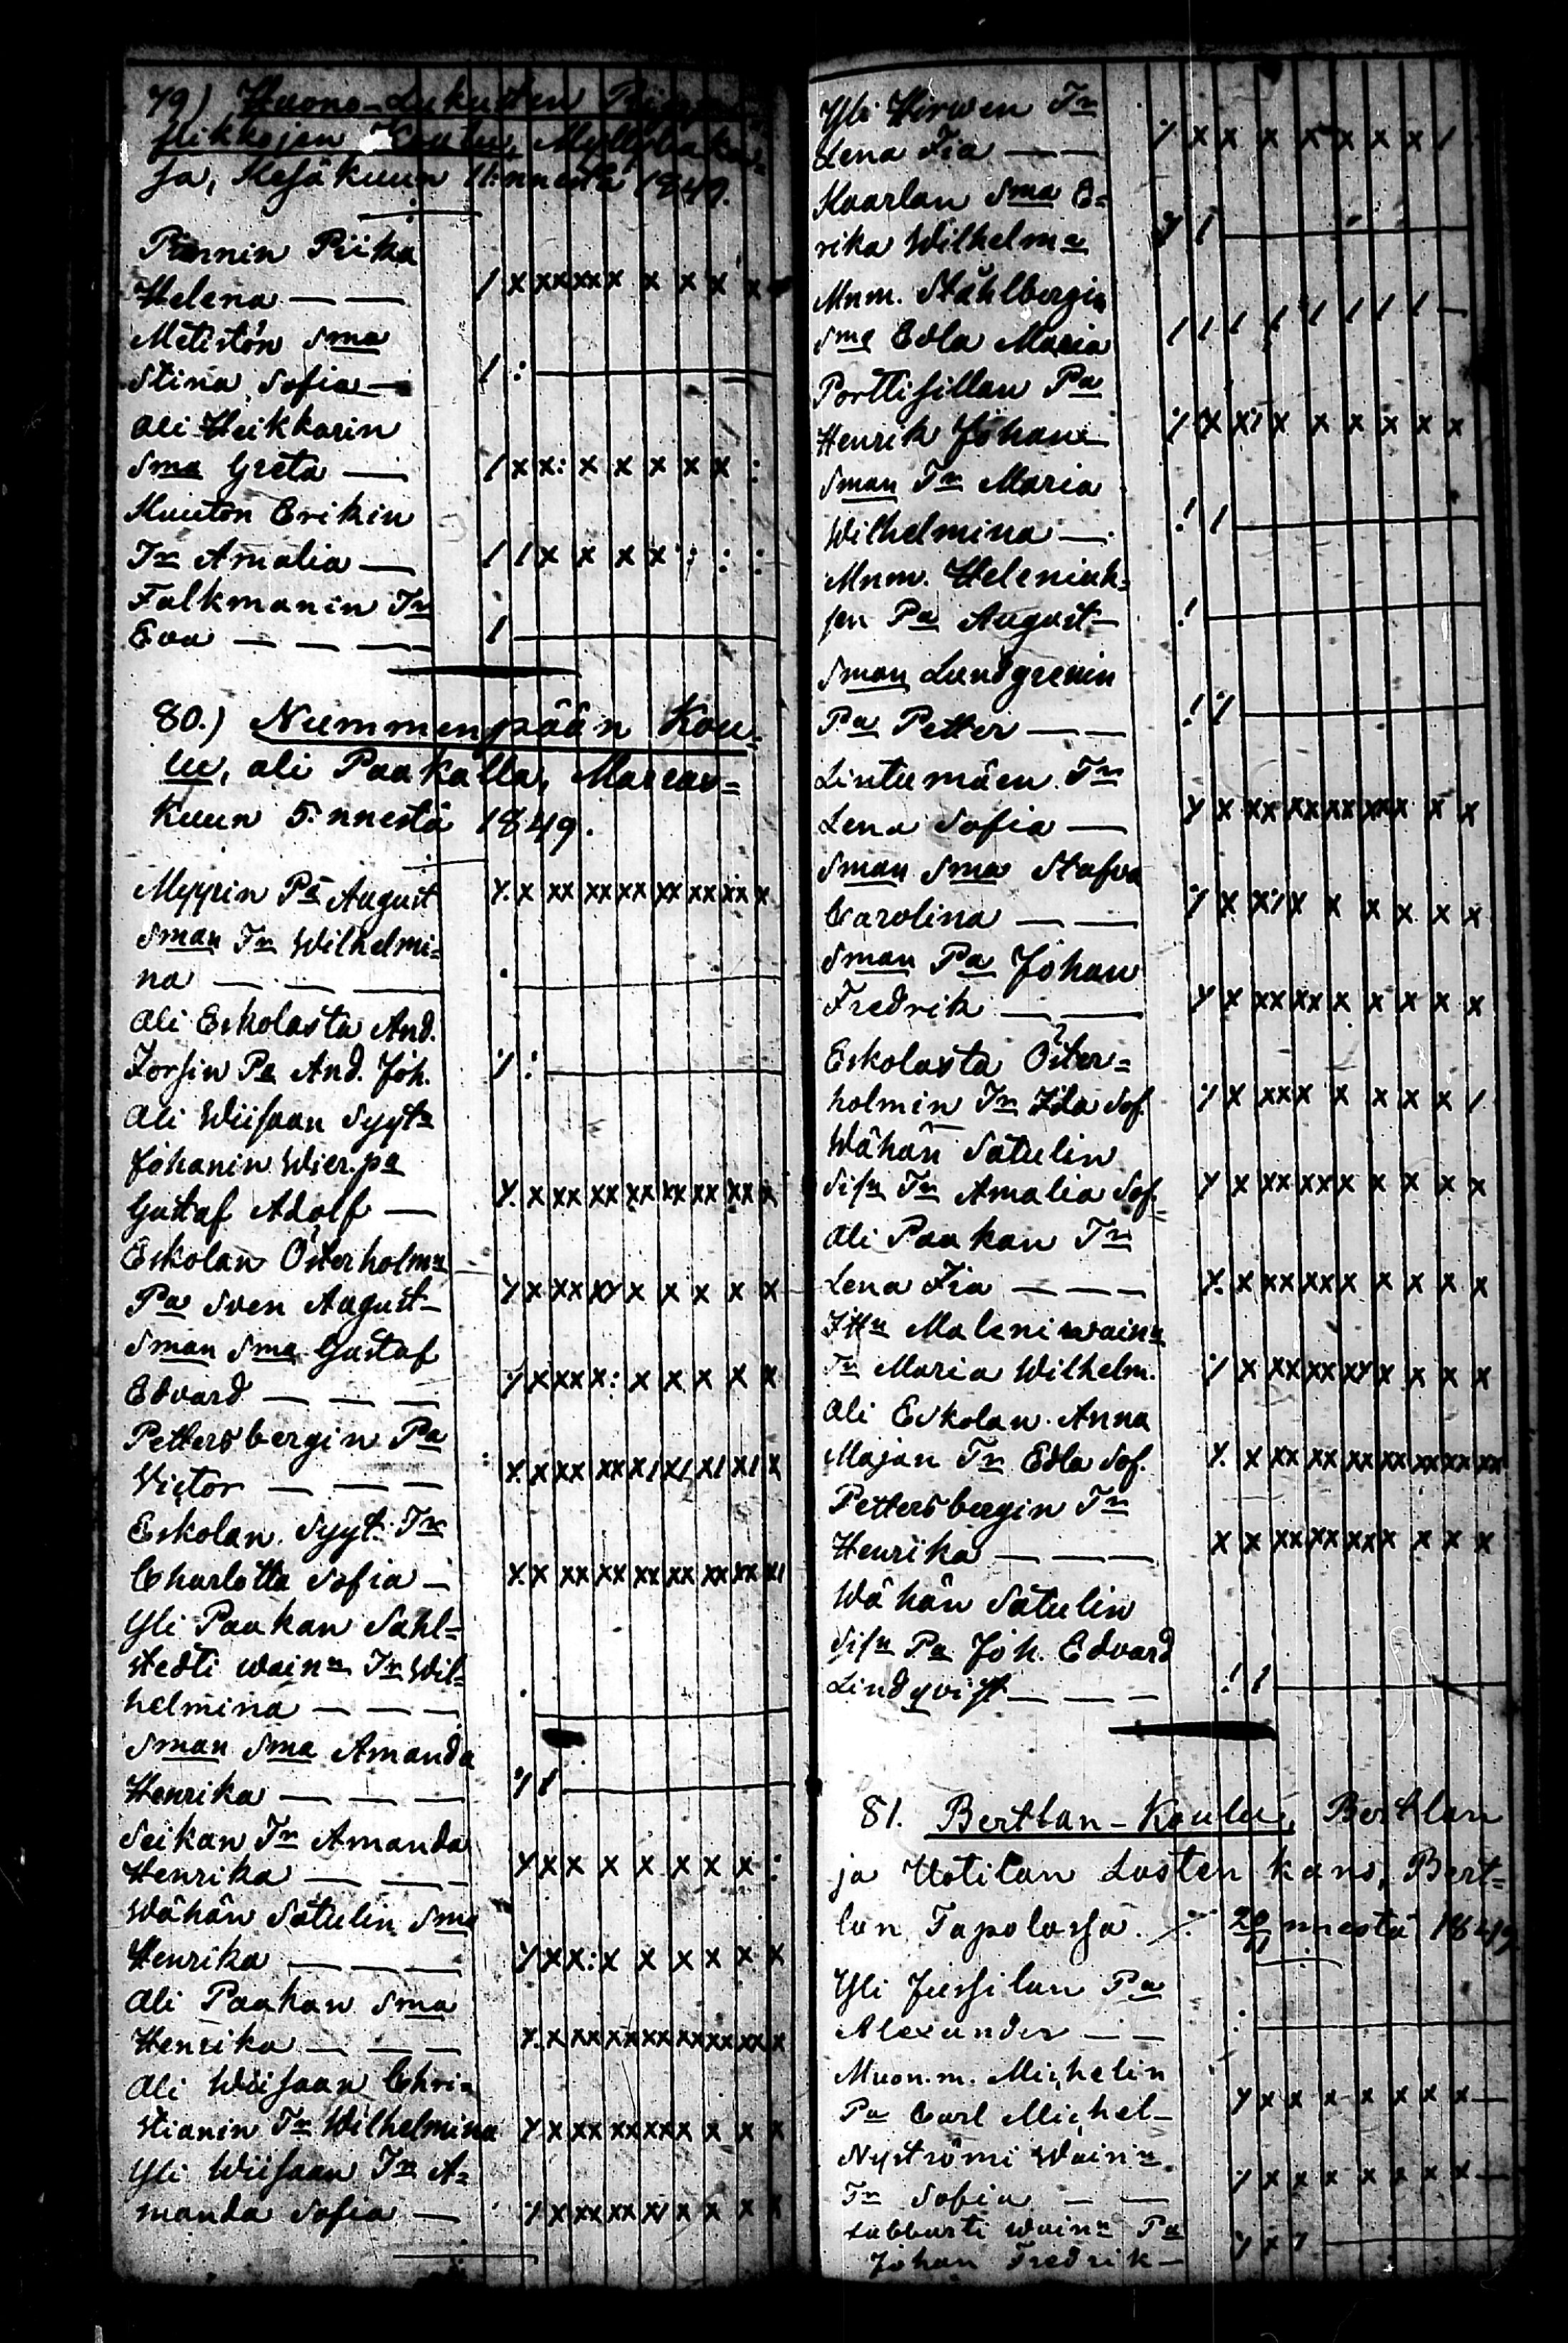 79) Huono-Lukuisten
flikkojen Koulu, Myllykyla-
sa, Kesäkuun 11:nnestä 1849.
Piernin Piika
Helena — — / x xx xx x x x x x
Metistön Sma
Stina Sofia — / :
Ali Heikkarin
Sma Greta — / x x: x x x x x :
Kuuton Erikin
Tr Amalia — / / x x x x : : :
Falkmanin Tr
Eva — — — /
80.) Nummenpään Kou-
lu, ali Paakalla, Marras=
kuun 5:nnestä 1849.
Myyrin Pa August ٪ x xx xx xx xx xx xx x
Sman Tr Wilhelmi=
na — — — .
Ali Eskolasta And.
Forsin Pa And. Joh. ٪ :
Ali Wiisaan Syyt:
Johanin Wier. pa
Gustaf Adolf — ٪ x xx xx xx xx xx xx x
Eskolan Österholmn
Pa Sven August — ٪ x xx xx x x x x x
Sman Sma Gustaf
Edvard — — — ٪ x xx x: x x x x x
Pettersbergin Pa
Victor — — — x x xx xx x/ x/ x/ x/ x
Eskolan Syyt. Tr
Charlotta Sofia — x x xx xx xx xx xx xx x/
Yli Paakan Sahl=
stedti wainn Tr Wil=
helmina — — — .
Sman Sma Amanda
Henrika — — — ٪ /
Seikan Tr Amanda
Henrika — — — ٪ x x x x x x x :
Wähän Satulin Sma
Henrika — — — ٪ x x: x x x x x x
Ali Paakan Sma
Henrika — — — ٪ x xx xx xx xx xx xx x
Ali Wiisaan Chri=
stianin Tr Wilhelmina ٪ x xx xx xx x x x x
Yli Wiisaan Tr A=
manda Sofia — ٪ x xx xx x/ x x x x
Yli Hirwen Tr
Lena Fia — — ٪ x x x x x x x /
Kaarlan Sma E=
rika Wilhelma ٪ /
Mnm. Ståhlbergin
Sma Edla Maria / / / / / / / / —
Porttisillan Pa
Henrik Johan — ٪ x x/ x x x x x x
Sman Tr Maria
Wilhelmina — ! /
Mnm. Heleniuk=
sen Pa August — !
Sman Lundgrenin
Pa Petter — — ! ٪
Lintumäen Tr
Lena Sofia — ٪ x xx xx xx xx x x x
Sman Sma Stafva
Carolina — — ٪ x x/ x x x x x x
Sman Pa Johan
Fredrik — — ٪ x xx xx x x x x x
Eskolasta Öster=
holmin Tr Ida Sof. ٪ x xx x x x x x /
Wähän Satulin
Sisn Tr Amalia Sof. ٪ x xx xx x x x x x
Ali Paakan Tr
Lena Fia — — — ٪ x xx xx x x x x x
Maleni wainn
Tr Maria Wilhelm. ٪ x xx xx xx x x x x
Ali Eskolan Anna
Majan Tr Edla Sof. ٪ x xx xx xx xx xx xx xx
Pettersbergin Tr
Henrika — — — x x xx xx xx x x x x
Wähän Satulin
Sisn Pa Joh. Edvard
Lindqvist — — — ! /
81. Berttlan-Koulu, Berttlan
ja Uotilan Lasten kans, Bert=
lan Tapolassa. 20/11 nnestä 1849
Yli Jussilan Pa
Alexander — — :
Muon. m. Michelin
Pa Carl Michel — ٪ x x x x x x x —
Nyströmi wainn
Tr Sofia — — ٪ x x x x x x x —
Labbarti wainn Pa
Johan Fredrik — ٪ x ٪